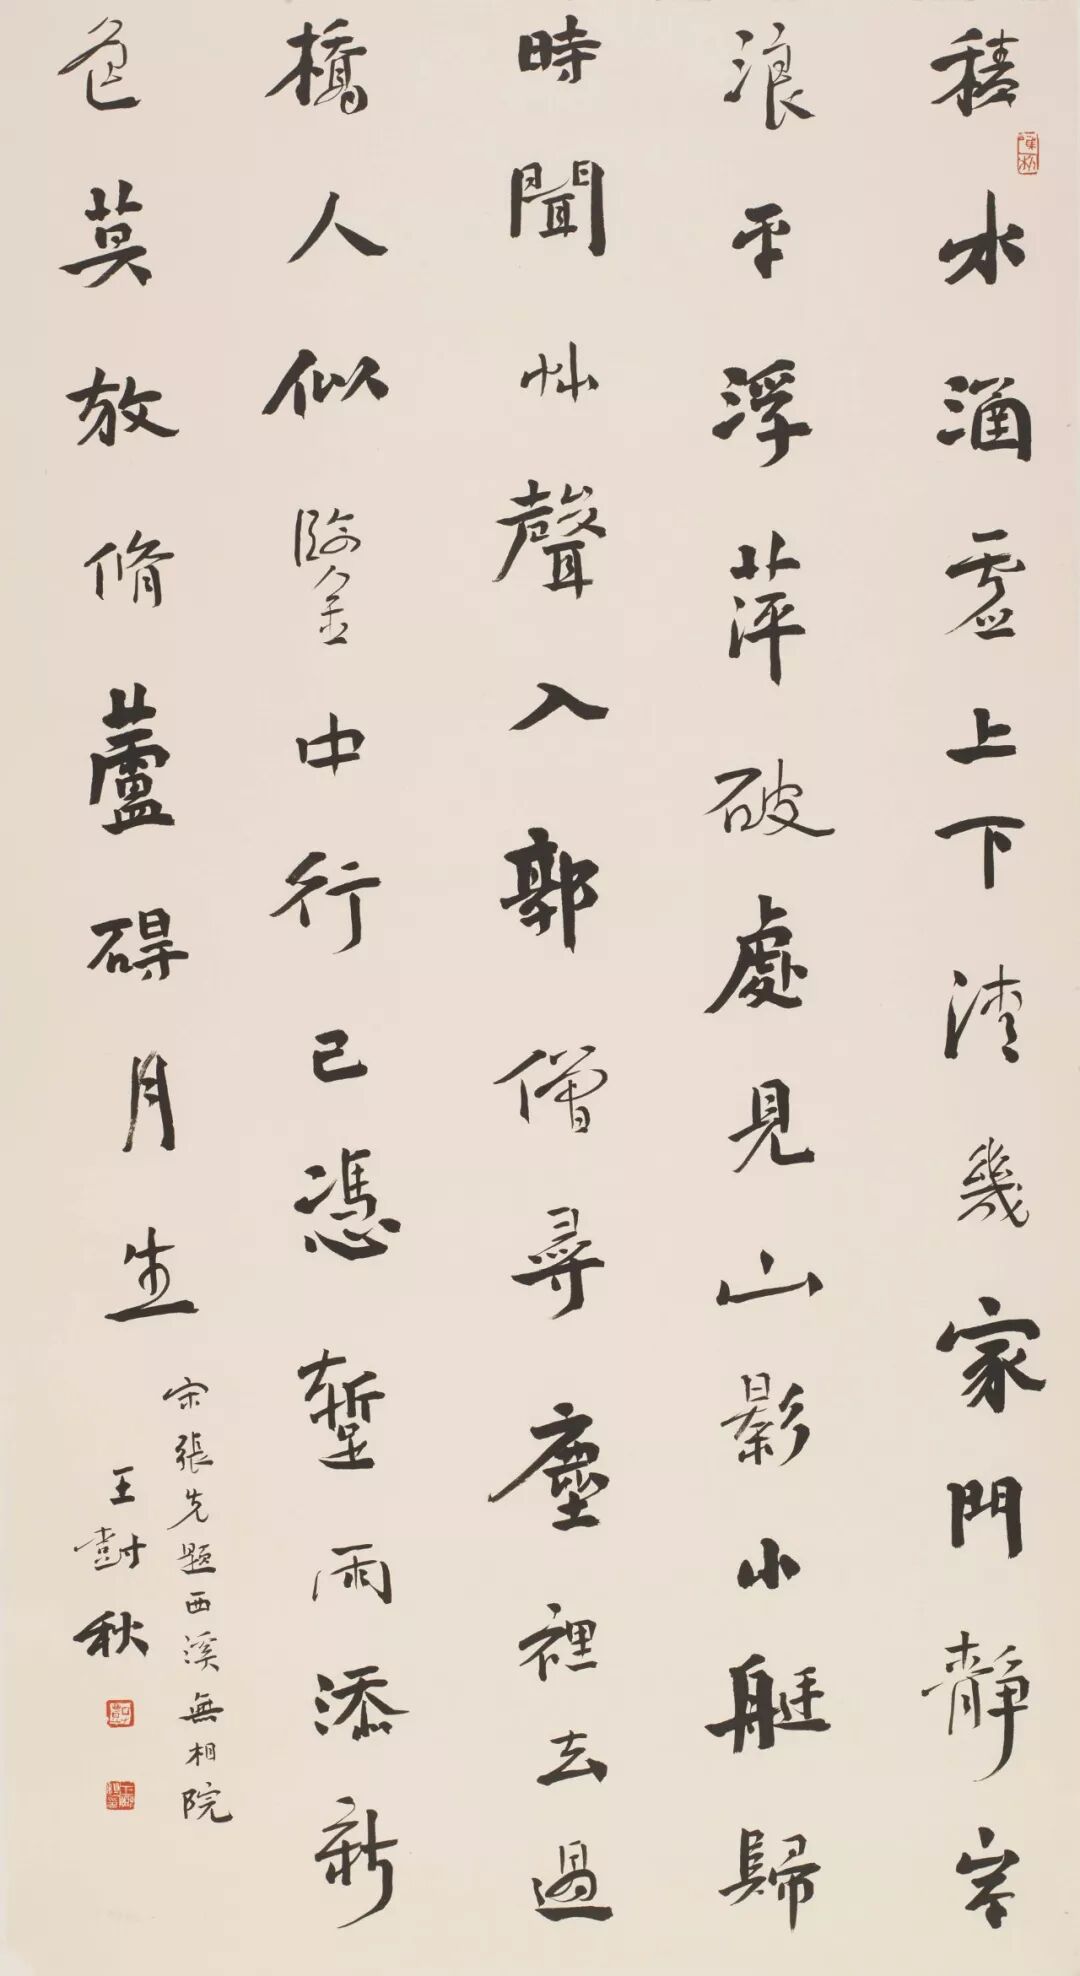 積水涵虛上下清幾家門靜岸
浪平浮萍破處見山影小艇歸
時聞艸聲入郭僧尋塵裡去過
橋人似鑒中行已憑暫雨添新
色莫放脩蘆碍月生
宋張先題西溪無相院
王尌秋